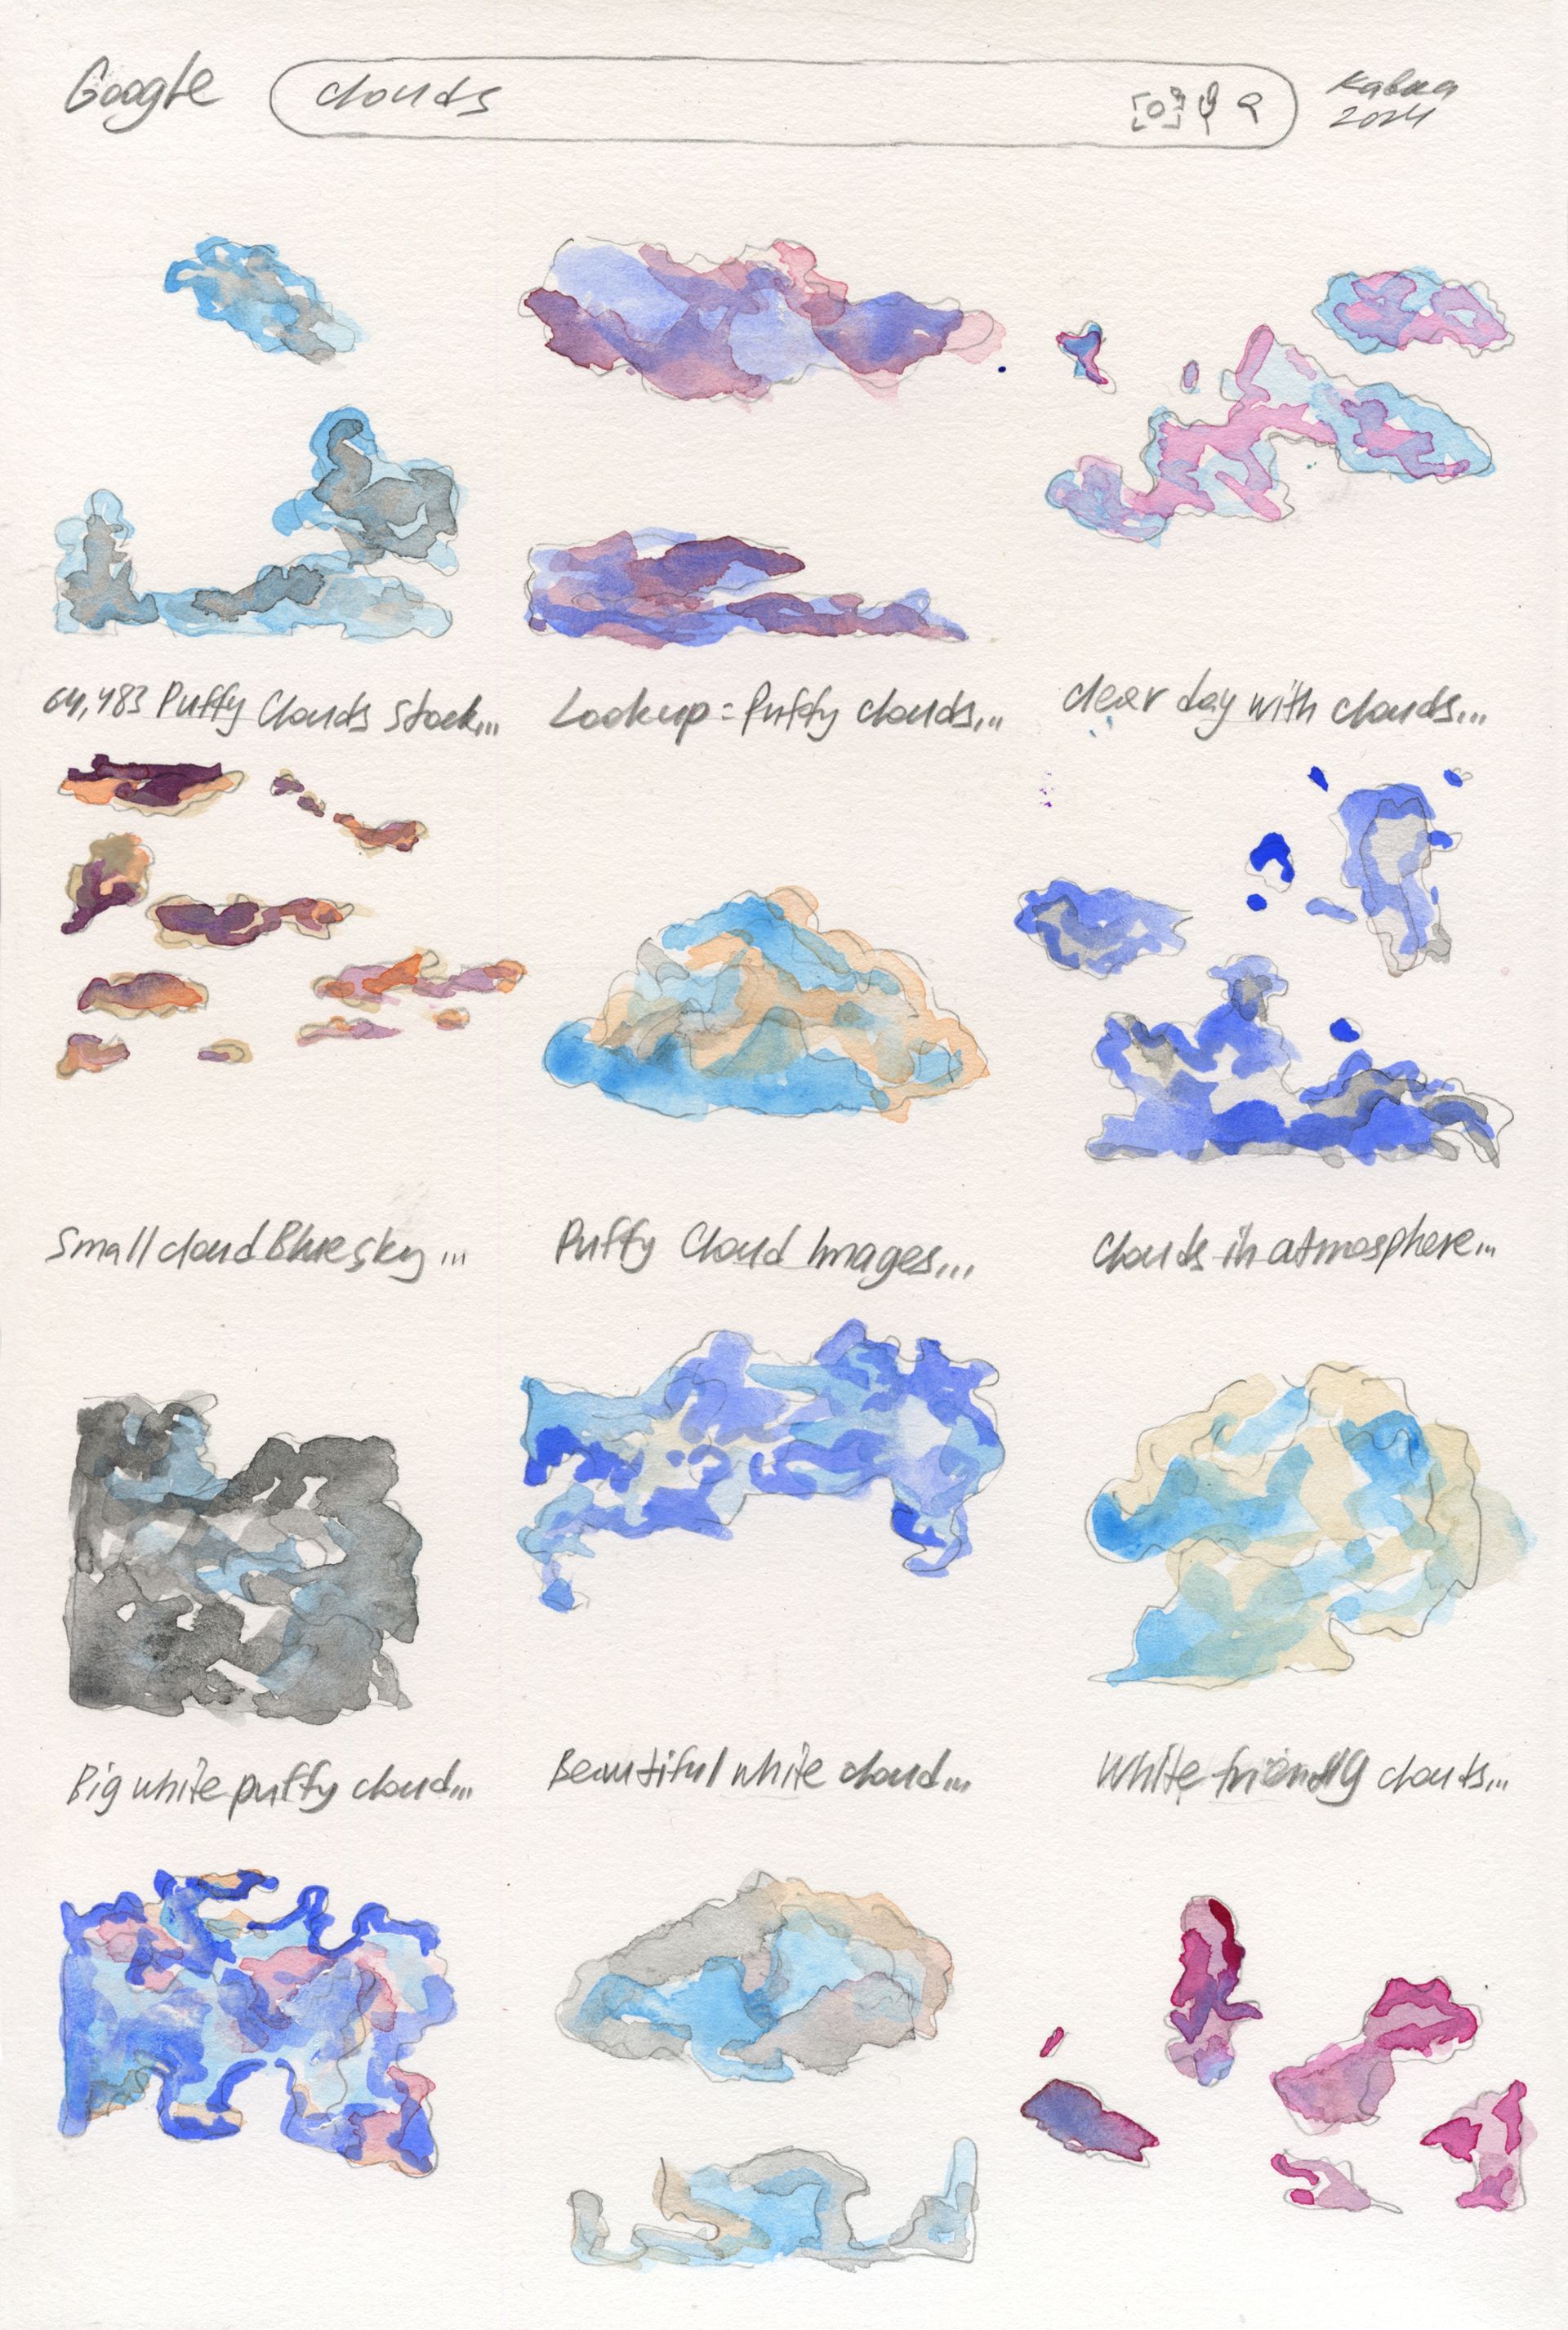 Google
clouds
2024
64,483 Puffy Clouds Stock...
Lookup = Puffy clouds...
clear day with clouds...
Small cloud Blue sky ...
Puffy Cloud Images...
Clouds in atmosphere...
Big white puffy cloud...
Beautiful white cloud...
White friendly clouds...